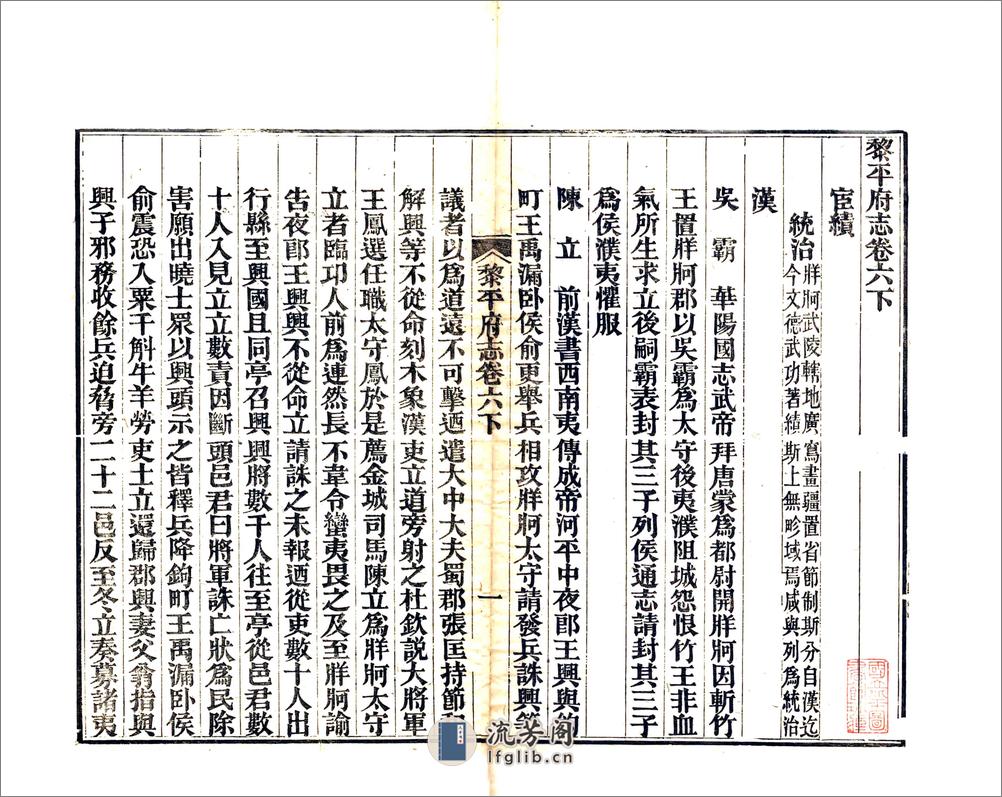 黎平府志卷六下
宦績
統治牂牁武陵轄地廣寫畫疆置省節制斯分自漢迄
今文德武功著績斯上無畛域焉咸與列爲統治
漢
吳　霸　華陽國志武帝拜唐蒙爲都尉開牂牁因斬竹
王置牂牁郡以吳霸爲太守後夷濮阻城怨恨竹王非血
氣所生求立後嗣霸表封其三子列侯通志請封其三子
爲侯濮夷懼服
陳　立　前漢書西南夷傳成帝河平中夜郎王興與鉤
町王禹漏卧侯俞更舉兵相攻牂牁太守請發兵誅興等
黎平府志卷六下　一
議者以爲道遠不可擊迺遣大中大夫蜀郡張匡持節和
解興等不從命刻木象漢吏立道旁射之杜欽説大將軍
王鳳選任職太守鳳於是薦金城司馬陳立爲牂牁太守
立者臨卭人前爲連然長不韋令蠻夷畏之及至牂牁諭
告夜郎王興興不從命立請誅之未報迺從吏數十人出
行縣至興國且同亭召興興將數千人往至亭從邑君數
十人入見立立數責因斷頭邑君曰將軍誅亡狀爲民除
害願出曉士眾以興頭示之皆釋兵降鉤町王禹漏卧侯
俞震恐入粟千斛牛羊勞吏士立還歸郡興妻父翁指與
興子邪務收餘兵迫脅旁二十二邑反至冬立奏募諸夷
流芳阁
lfglib.cn